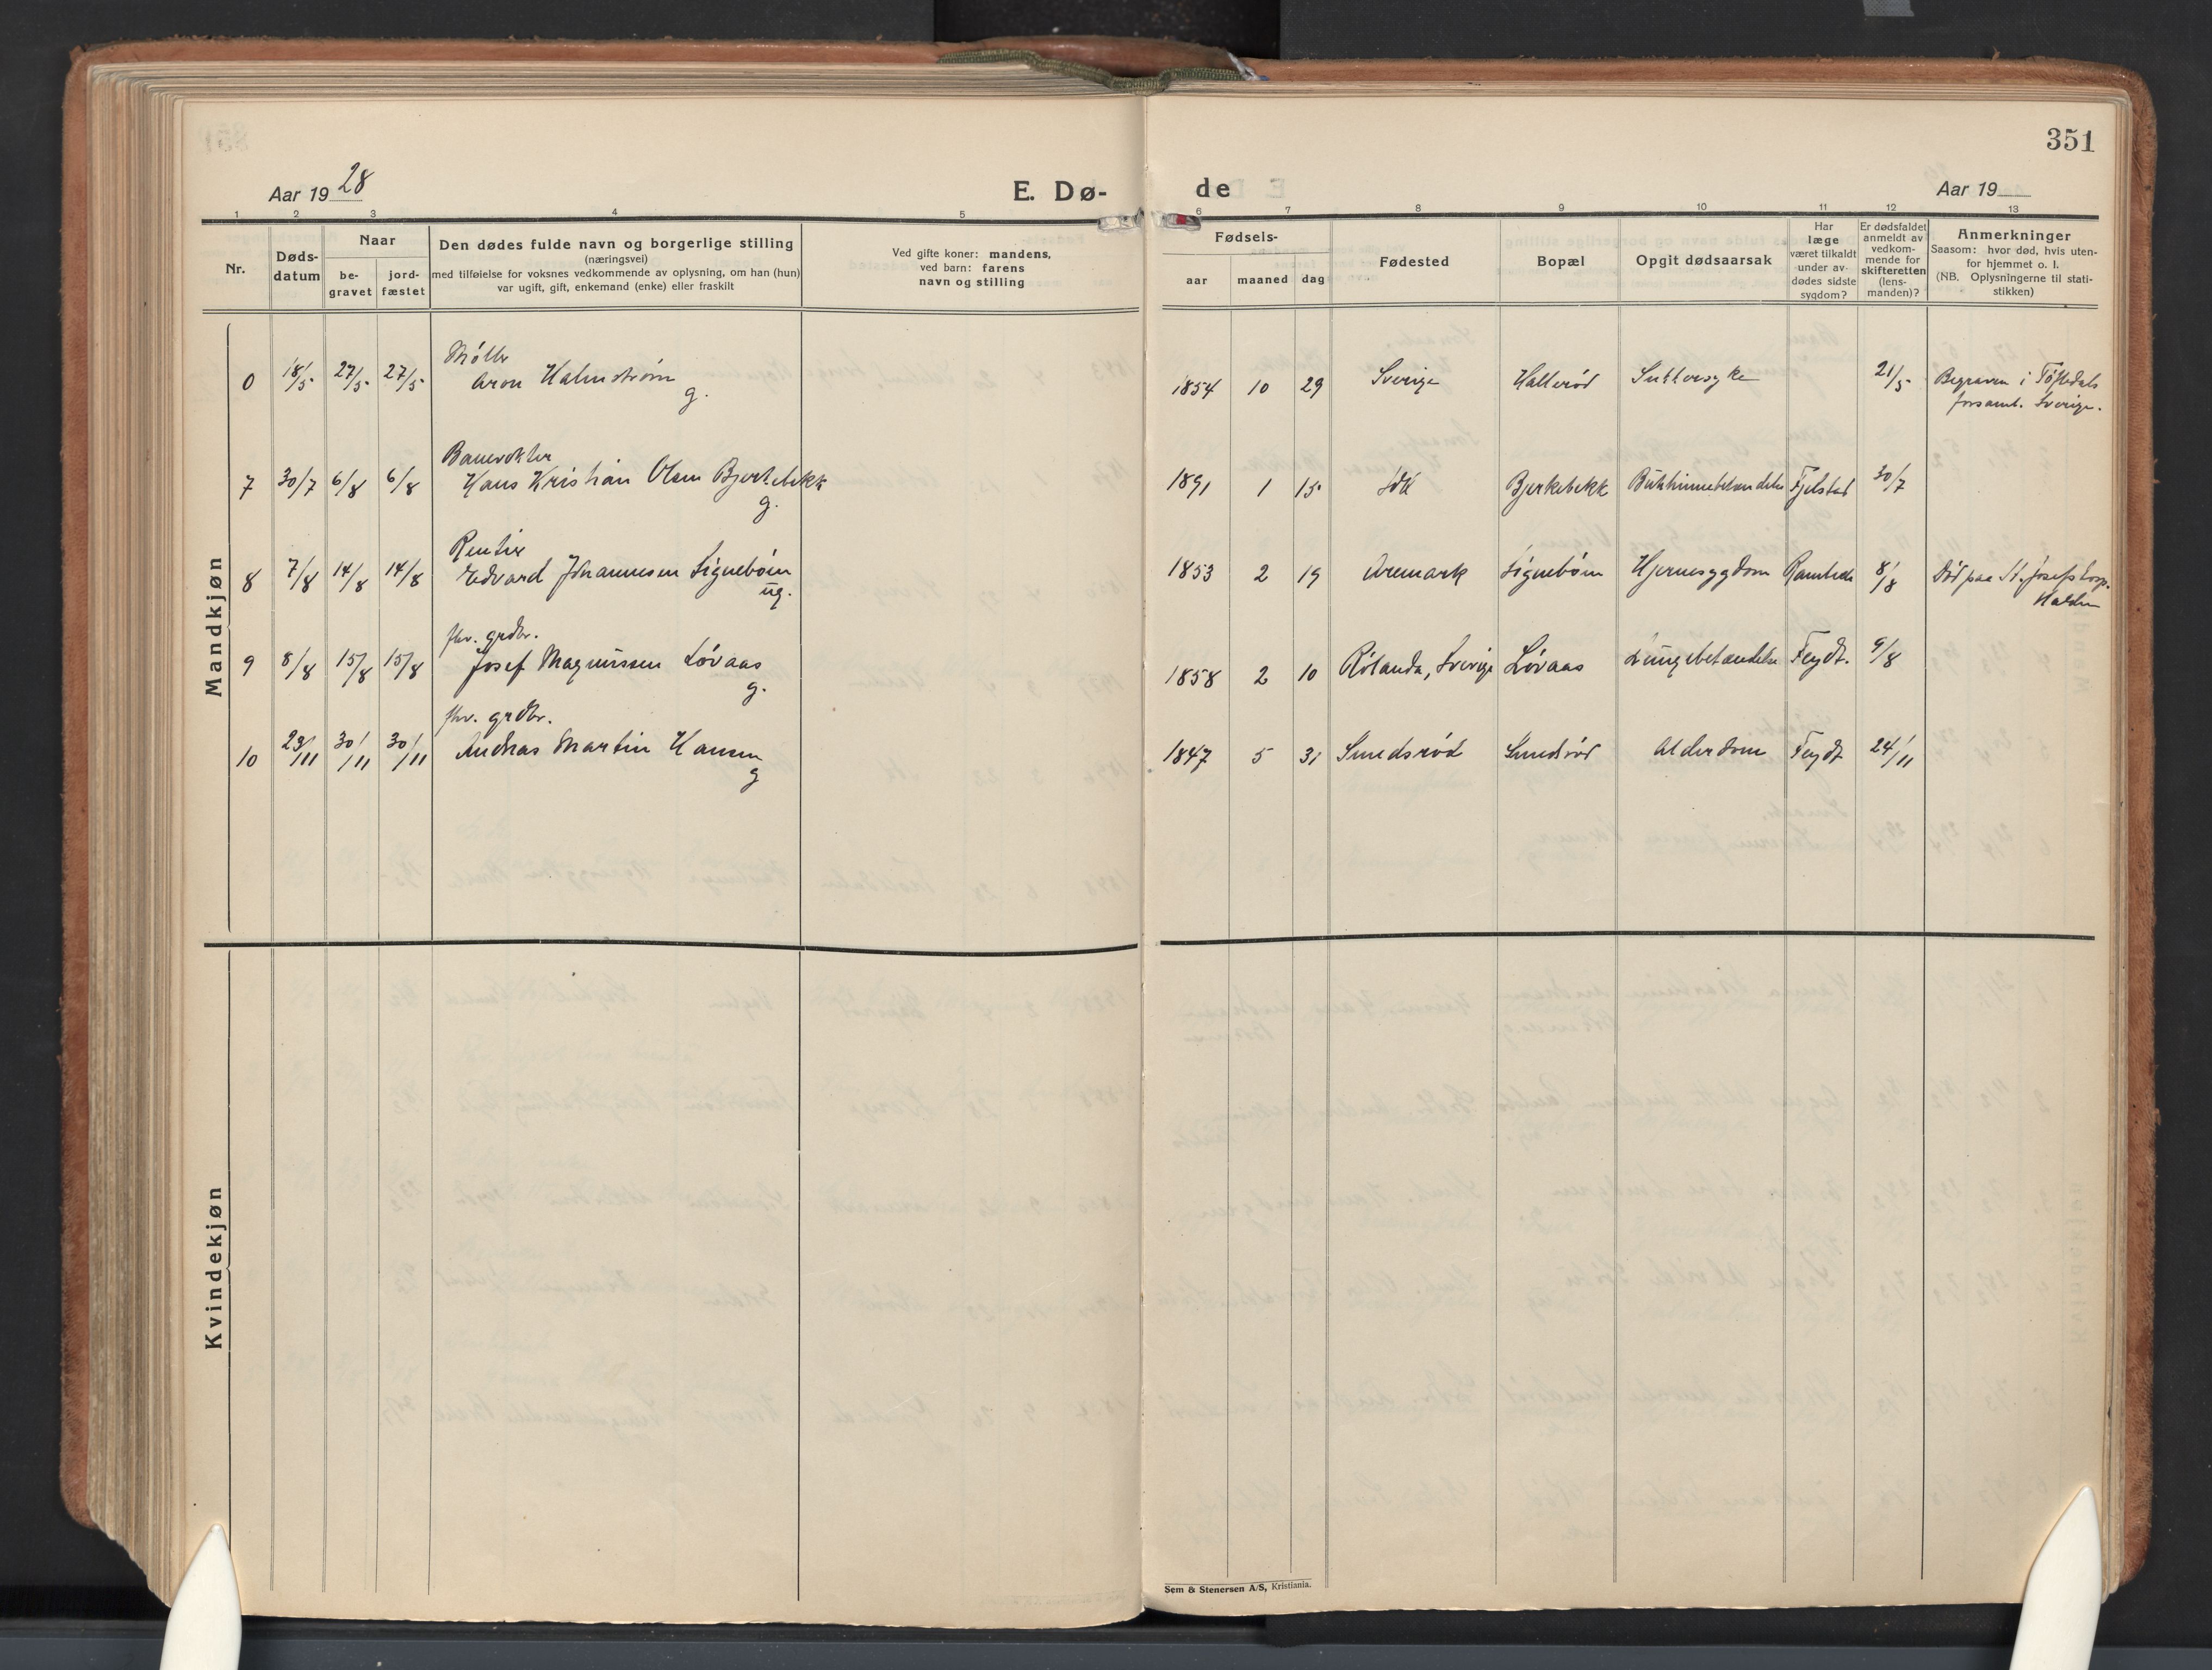 351
Aar 1928
E. Dø-
de
Aar 19
1 2 3 4 5 6 7 8 9 10 11 12 13
Nr.
Døds-
datum
Naar
be-
gravet
jord-
fæstet
Den dødes fulde navn og borgerlige stilling
(næringsvei)
med tilføielse for voksnes vedkommende av oplysning, om han (hun)
var ugift, gift, enkemand (enke) eller fraskilt
Ved gifte koner: mandens,
ved barn: farens
navn og stilling
Fødsels-
aar maaned dag
Fødested
Bopæl
Opgit dødsaarsak
Har
læge
været tilkaldt
under av-
dødes sidste
sygdom?
Er dødsfaldet
anmeldt av
vedkom-
mende for
skifteretten
(lens-
manden)?
Anmerkninger
Saasom: hvor død, hvis uten-
for hjemmet o. l.
(NB. Oplysningerne til stati-
stikken)
Mandkjøn
Møller
0 18/5 27/5 27/5 Aron Halmstrøm 1854 10 29 Sverige Hallerød Sukkersyke 21/5 Begraven i Töftedals
g. församl. Sverige.
Banevokter
7 30/7 6/8 6/8 Hans Kristian Olsen Bjerkebekk 1891 1 15 Bjerkebekk Bukhinnebetændelse Fjelstad 30/7
g.
Rentier
8 7/8 14/8 14/8 Edvard Johannesen Lignebøen 1853 2 19 Aremark Lignebøen Hjernesygdom 8/8 Død paa St. Josefs hosp.
ug. Halden
fhv. grdbr.
9 8/8 15/8 15/8 Josef Magnussen Løvaas 1858 2 10 Rölanda, Sverige Løvaas Lungebetændelse Feydt. 9/8
g.
fhv. grdbr.
10 23/11 30/11 30/11 Andreas Martin Hansen 1847 5 31 Smedsrød Smedsrød Alderdom Feydt 24/11
g
Kvindekjøn
Sem & Stenersen A/S, Kristiania.